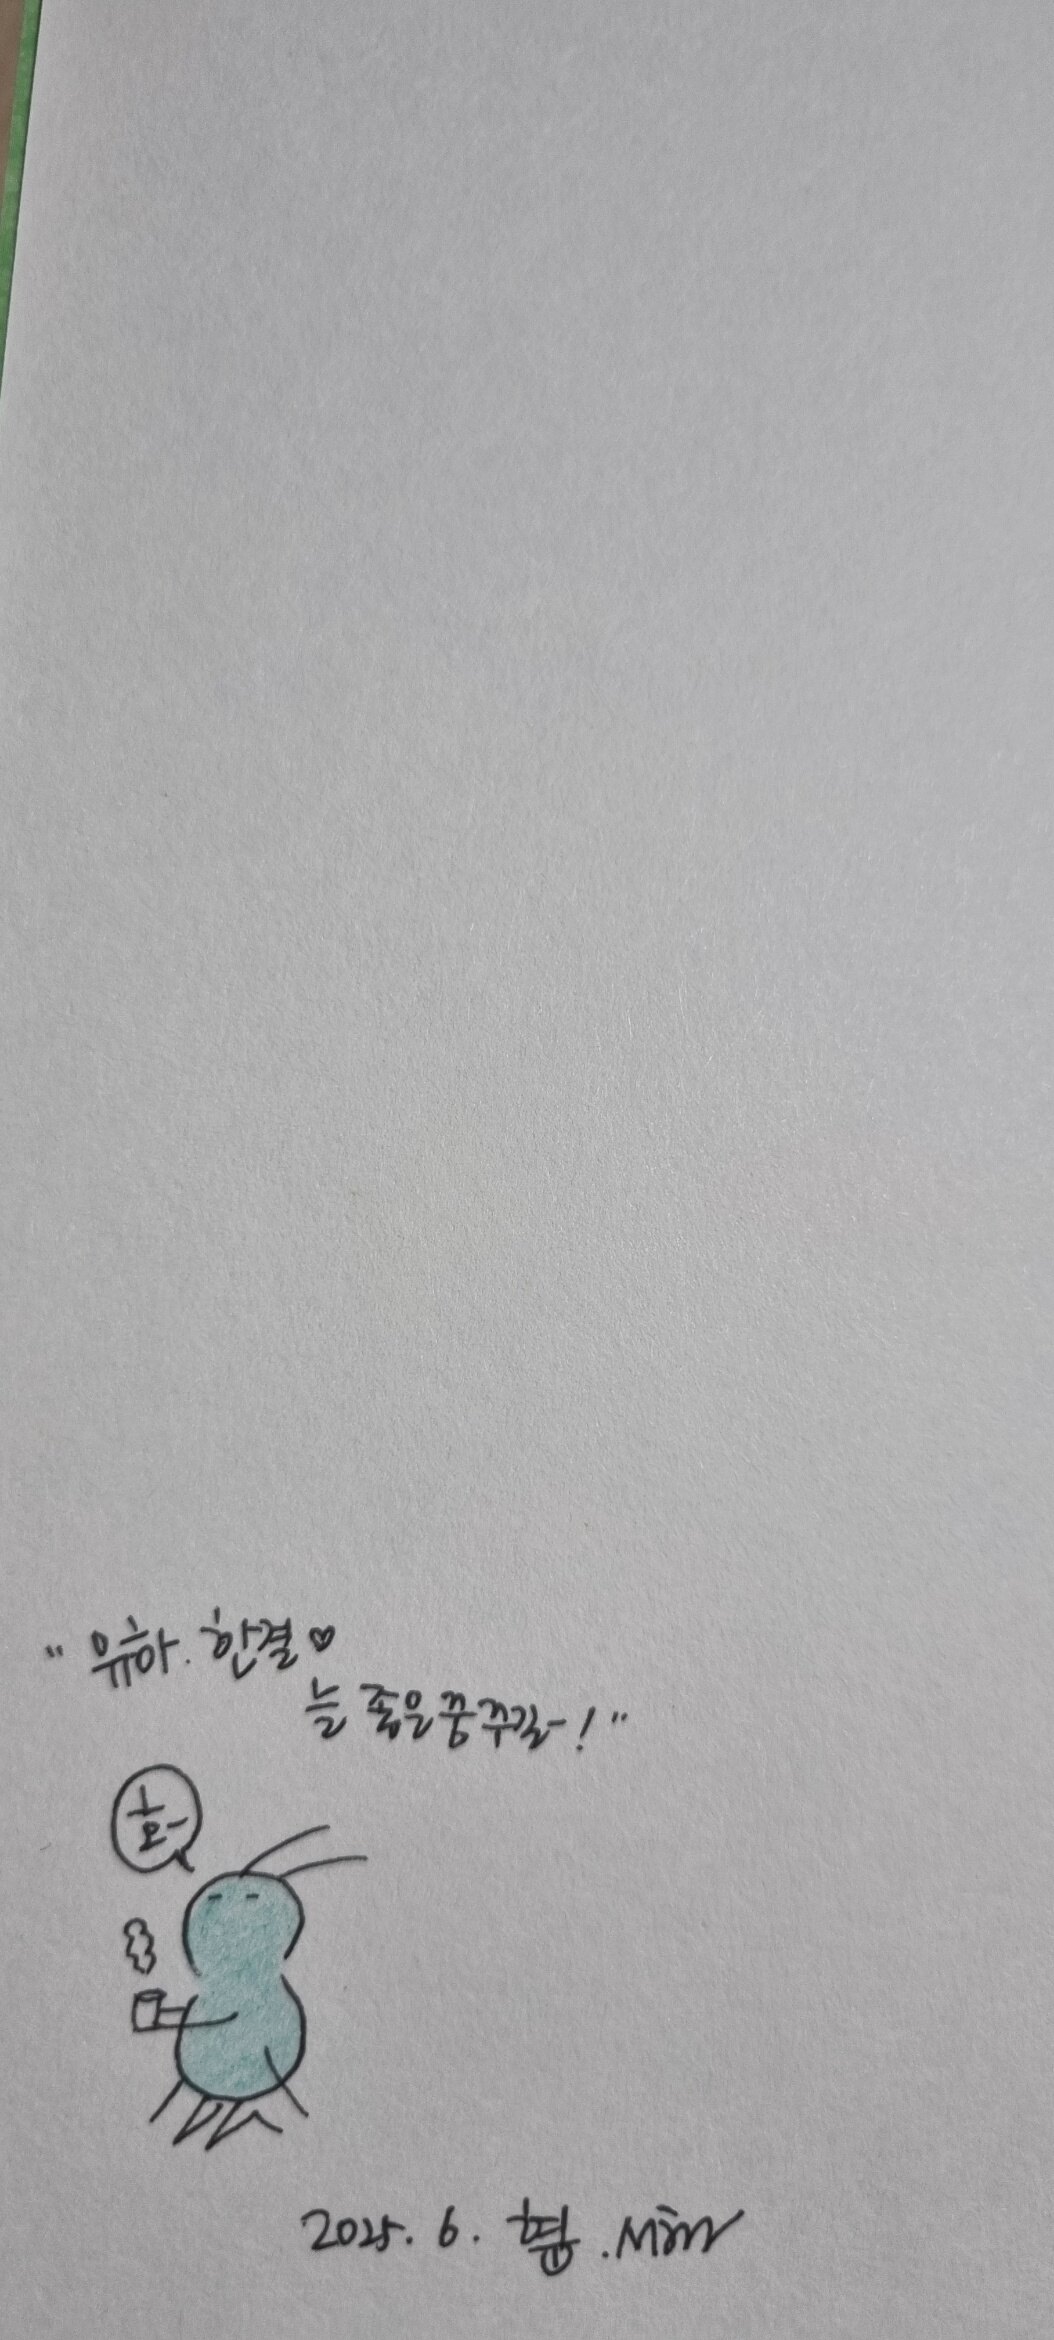 " 유하. 한결♡
늘 좋은꿈꾸길-!"
2025. 6.